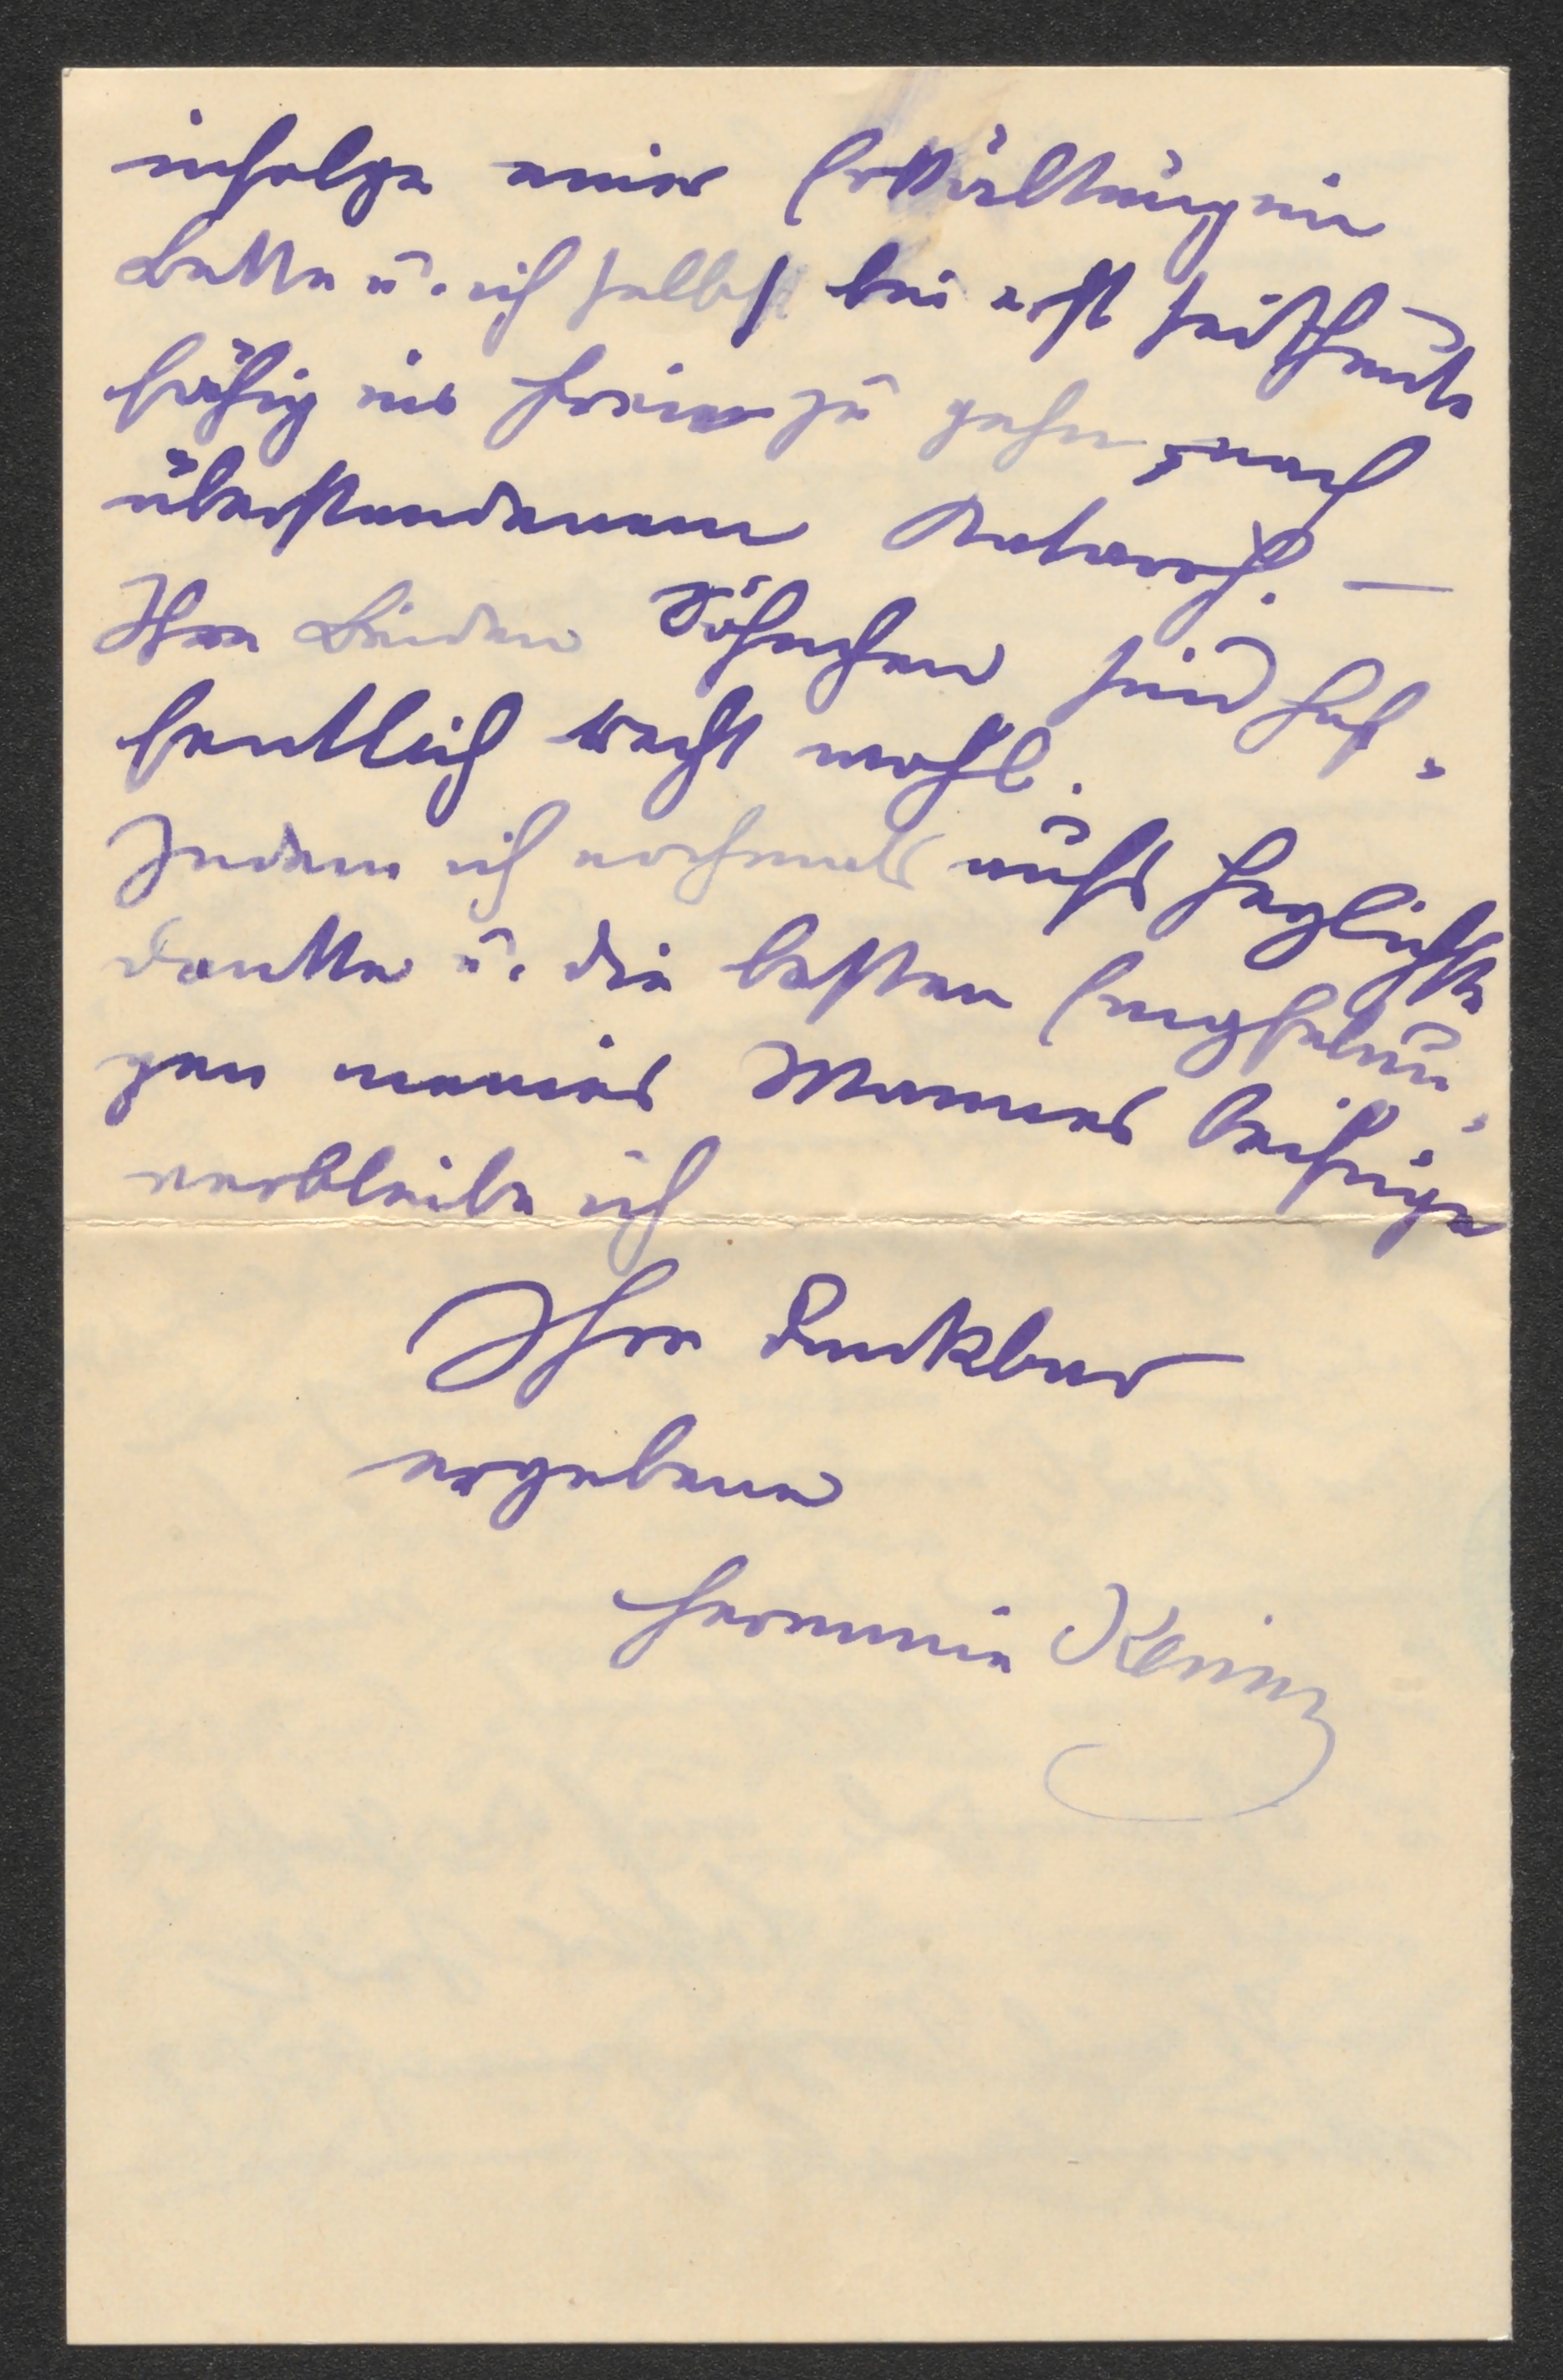 infolge einer Erkältung im
Bette u. ich selbst bin erst seit heute
fähig ins Freie zu gehen, nach
überstandenem Katarrh. —
Ihre beiden Söhnchen sind hof-
fentlich recht wohl.
Indem ich nochmals aufs herzlichste
danke u. die besten Empfehlun-
gen meines Mannes beifüge
verbleibe ich
Ihre dankbar
ergebene
Hermine